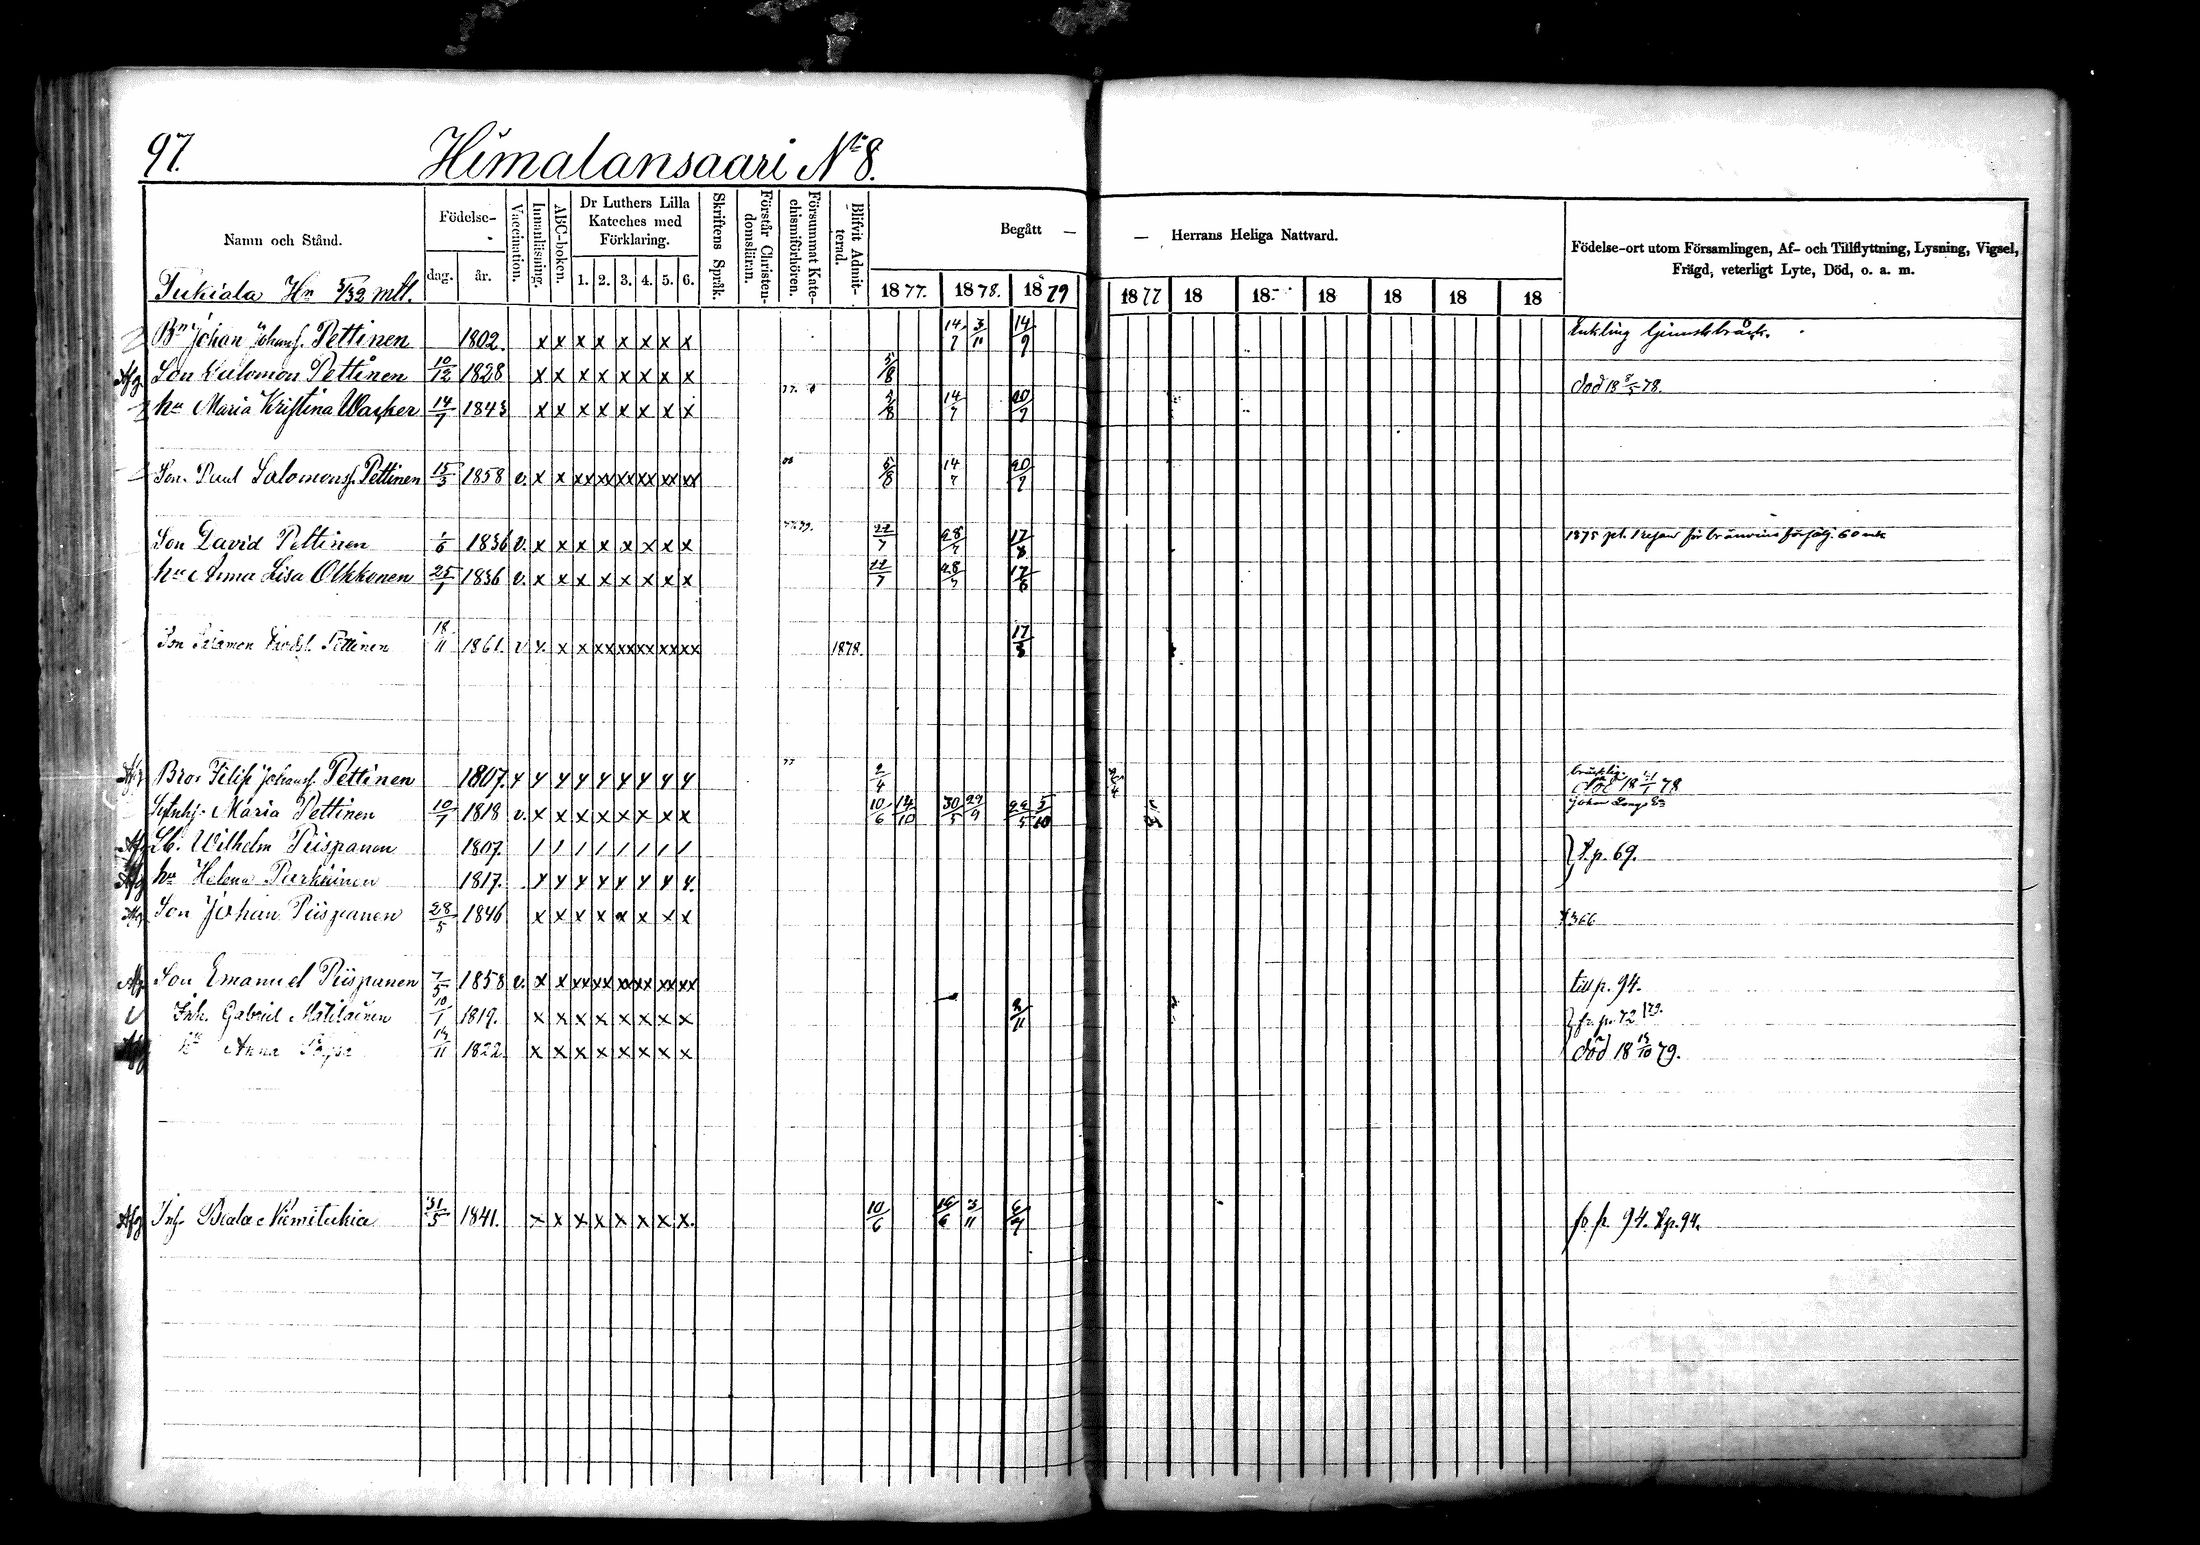 97.
Himalansaari No 8.
Namn och Stånd.
Födelse-
dag.
år.
Vaccination.
Innanläsning.
ABC-boken.
Dr Luthers Lilla
Kateches med
Förklaring.
1. 2. 3. 4. 5. 6.
Skriftens Språk.
Förstår Christen-
domsläran.
Försummat Kate-
chismiförhören.
Blifvit Admit-
terad.
Begått — — Herrans Heliga Nattvard.
1877. 1878. 1879 1877 18 18 18 18 18 18
Födelse-ort utom Församlingen, Af- och Tillflyttning, Lysning, Vigsel,
Frägd, veterligt Lyte, Död, o. a. m.
Hn 5/32 mtl.
Bn Johan Johans. Pettinen 1802. x x x x x x x x 14/7 3/11 14/9 Enkling
Afg. Son Salomon Pettinen 10/12 1828 x x x x x x x x 5/8 död 18 8/5 78.
hu Maria Kristina 14/7 1843 x x x x x x x x 77. 5/8 14/7 20/7
Son Paul Salomons. Pettinen 15/3 1858 v. x x xx xx xx xx xx xx 5/8 14/7 20/7
Son David Pettinen 1/6 1836 v. x x x x x x x x 22/7 28/7 17/8 1875 för bränvins försälj. 60 mk
hu Anna Lisa Olkkonen 25/7 1836 v. x x x x x x x x 22/7 28/7 17/8
Son Salomon Davids. Pettinen 18/11 1861. v x. x x xx xx xx xx xx 1878. 17/8
Afg Bror Filip Johans. Pettinen 1807. 77 2/4 bräcklig.
död 18 78
Maria Pettinen 10/7 1818 v. x x x x x x x x 10/6 14/10 30/5 29/9 22/5 5/10
Afg Wilhelm Piispanen 1807. / / / / / / / / } t. p. 69.
Afg hu Helena Purhoinen 1817.
Afg Son Johan Piispanen 28/5 1846 x x x x x x x x 366
Afg Son Emanuel Piispanen 7/5 1858 v. x x xx xx xx xx xx xx till p. 94.
Inh. Gabriel Matilainen 10/1 1819. x x x x x x x x 2/11 } fr. p. 72 /79.
Afg hu Anna 1822. x x x x x x x x död 18 /10 79.
Afg Inh. Beata Niemitukia 31/5 1841. x x x x x x x x. 10/6 16/6 3/11 6/7 fr p. 94. t. p. 94.